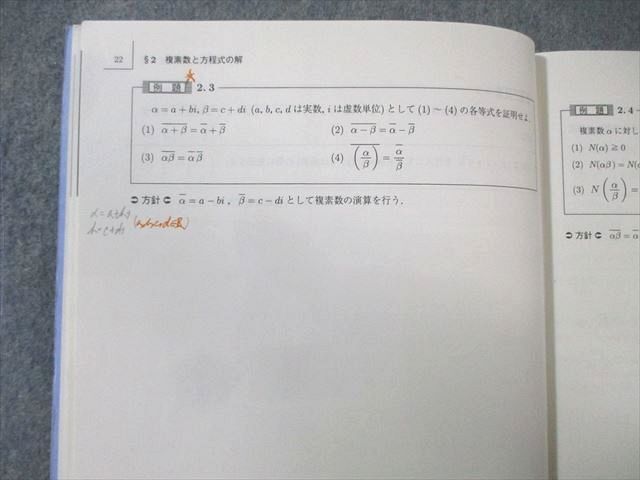 22 §2 複素数と方程式の解
例 題 2.3
α = a + bi, β = c + di (a, b, c, d は実数, i は虚数単位) として (1) ~ (4) の各等式を証明せよ.
(1) \overline{α + β} = \overline{α} + \overline{β} (2) \overline{α − β} = \overline{α} − \overline{β}
(3) \overline{αβ} = \overline{α} \overline{β} (4) \overline{(α/β)} = \overline{α}/\overline{β}
➲方針➲ \overline{α} = a − bi, \overline{β} = c − di として複素数の演算を行う.
例 題 2.4
複素数 α に対し
(1) N(α) ≧ 0
(2) N(αβ) = N(
(3) N(α/β) =
➲方針➲ \overline{αβ} = \overline{α}